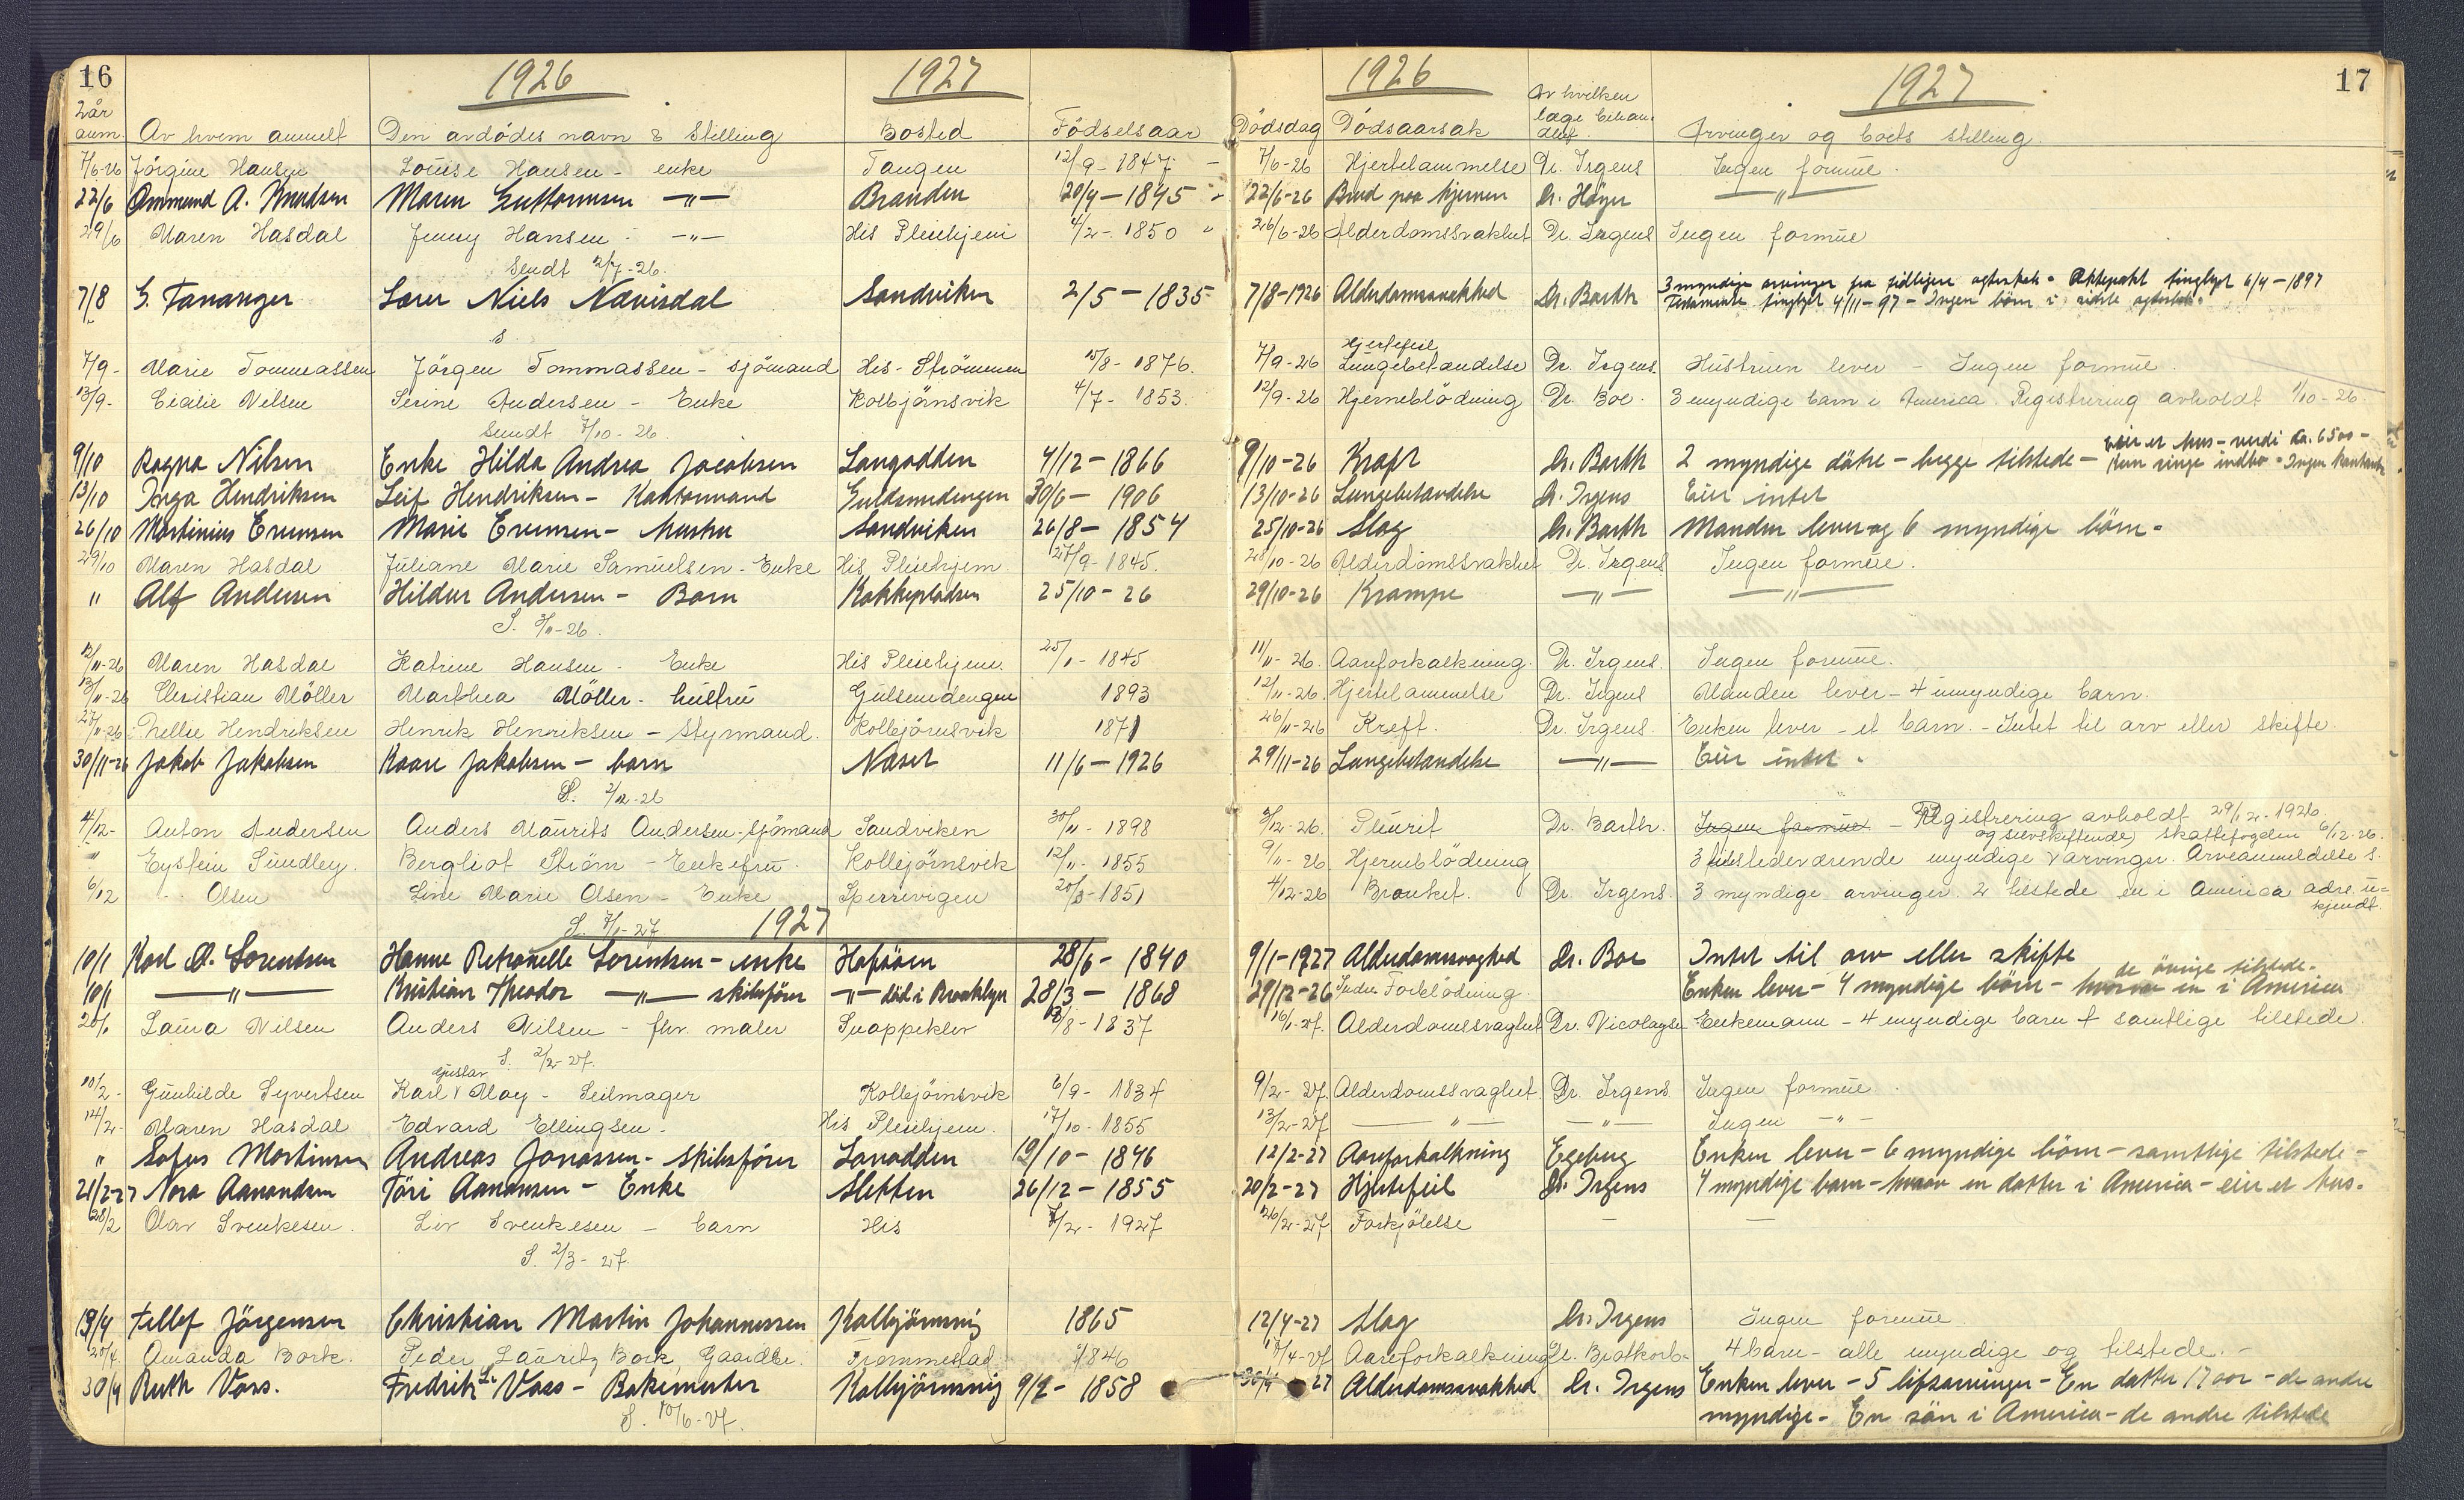 16 1926 1927 1926 1927 17
Når anm. Av hvem anmelt Den avdödes navn & Stilling Bosted Födselsaar Dödsdag Dödsaarsak Av hvilken læge behandlet Arvinger og boets stilling
7/6-26 Jörgine Hansen Louise Hansen - enke Tangen 12/9-1847 7/6-26 Hjertelammelse Dr. Irgens Ingen formue.
22/6 Ommund A. Knudsen Maren Guttormsen -"- Branden 20/4-1845 22/6-26 Dr. Höyer -"-
29/6 Maren Hasdal Jenny Hansen -"- His Pleiehjem 4/2-1850 26/6-26 Alderdomssvakhet Dr. Irgens Ingen formue
Sendt 2/7-26.
7/8 G. Tananger Lærer Niels Nævisdal Sandviken 2/5-1835 7/8-1926 Alderdomssvakhed Dr. Barth 3 myndige arvinger fra tidligere egteskab - Ektepakt tinglyst 6/4-1897
Testamente tinglyst 4/11-97 - Ingen börn i sidste egteskab.
S.
7/9- Marie Tommassen Jörgen Tommassen - sjömand His-Strömmen 15/8-1876. 7/9-26 Hjertefeil Lungebetændelse Dr. Irgens. Hustruen lever - Ingen formue.
13/9- Cecilie Nilsen Serine Andersen - Enke Kolbjörnsvik 4/7-1853. 12/9-26 Hjerneblödning Dr. Boe. 3 myndige barn i America. Registrering avholdt 1/10-26.
Sendt 7/10-26.
9/10 Ragna Nilsen Enke Hilda Andrea Jacobsen Langodden 4/12-1866 9/10-26 Kræft Dr. Barth 2 myndige dötre - begge tilstede - Eier et hus - verdi ca. 6500 - Kun ringe indbo - Ingen kontanter
13/10 Inga Hendriksen Leif Hendriksen - Kontormand Guldsmedengen 30/6-1906 13/10-26 Lungebetændelse Dr. Irgens Eier intet
26/10 Martinius Evensen Marie Evensen - hustru Sandviken 26/8-1854 25/10-26 Slag Dr. Barth Manden lever og 6 myndige börn.
29/10 Maren Hasdal Juliane Marie Samuelsen - Enke His Pleiehjem. 27/9-1845. 28/10-26 Alderdomssvakhet Dr. Irgens Ingen formue.
" Alf Andersen Hildur Andersen - Barn Kokkepladsen 25/10-26 29/10-26 Krampe -"- -"-
S. 3/11-26.
12/11-26 Maren Hasdal Katrine Hansen - Enke His Pleiehjem. 25/1-1845 11/11-26. Aareforkalkning. Dr. Irgens. Ingen formue.
13/11-26 Christian Möller Marthea Möller - hustru Gulsmedengen 1893 12/11-26. Hjertelammelse Dr. Irgens Manden lever - 4 umyndige barn.
27/11-26 Nellie Hendriksen Henrik Henriksen - Styrmand. Kolbjörnsvik 1871 26/11-26 Kreft. Dr. Irgens. Enken lever - et barn. - Intet til arv eller skifte.
30/11-26 Jakob Jakobsen Kaare Jakobsen - barn Næset 11/6-1926 29/11-26 Lungebetændelse -"- Eier intet.
S. 2/12-26
4/12- Anton Andersen Anders Maurits Andersen - sjömand Sandviken 30/11-1898 3/12-26. Pleurit Dr. Barth. Ingen formue - Registrering avholdt 29/12.1926.
" Eystein Sundley. Bergliot Ström - Enkefru. Kolbjörnsvik 12/11-1855 9/11-26 Hjerneblödning 3 tilstedeværende myndige og selvskiftende arvinger. Arveanmeldelse S. skattefogden 6/12-26.
6/12 Olsen Line Marie Olsen - Enke Sperrevigen 20/3-1851 4/12-26 Bronket. Dr. Irgens. 3 myndige arvinger. 2 tilstede en i America adr. ukjendt.
S. 7/1-27 1927
10/1 Karl A. Sorentsen Hanne Petronelle Sorentsen - enke Hafsöen 28/6-1840 9/1-1927 Alderdomssvaghed Dr. Boe Intet til arv eller skifte
10/1 -"- Kristian Theodor -"- skibsförer -"- död i Brooklyn 28/3-1868 29/12-26 Indre Forblödning. Enken lever - 4 myndige börn - hvorav en i America de övrige tilstede.
20/1 Laura Nilsen Anders Nilsen - fhv. maler Snappeklev 13/8-1837 16/1-27. Alderdomssvaghet Dr. Nicolaysen Enkemann - 4 myndige barn samtlige tilstede.
S. 2/2-27.
10/2- Gunhilde Syvertsen Karl Gustav May - Seilmager Kolbjörnsvik 6/9-1834 9/2-27. Alderdomssvaghet Dr. Irgens. Ingen formue.
14/2- Maren Hasdal Edvard Ellingsen - His Pleiehjem. 17/10-1855 13/2-27 -"- -"- Ingen -"-
" Sofus Martinsen Andreas Jonassen - Skibsförer Lanodden 19/10-1846 12/2-27 Aareforkalkning Egeberg Enken lever - 6 myndige börn - samtlige tilstede -
21/2-27 Nora Aanondsen Töri Aanonsen - Enke Sletten 26/12-1855 20/2-27 Hjertefeil Dr. Irgens 4 myndige barn - hvorav en datter i America - eier et hus.
28/2 Olav Svenkesen. Liv Svenkesen - barn His 7/2-1927 26/2-27 Forkjölelse - -
S. 2/3-27.
19/4 Tellef Jörgensen Christian Martin Johannessen Kolbjörnsvig 1865 12/4-27 Slag Dr. Irgens Ingen formue
20/4. Amanda Bork. Peder Lauritz Bork, Gaardbr. Frommestad 1846 17/4-27 Aareforkalkning Dr. Brotkorb- 4 barn - alle myndige og tilstede. -
30/4 Ruth Voss. Fredrik L. Voss - Bakermester Kolbjörnsvig 9/2-1858 30/4 27 Alderdomssvakhed Dr. Irgens Enken lever - 5 livsarvinger - En datter 17 aar - de andre
myndige - En sön i America - de andre tilstede
S. 10/6-27.